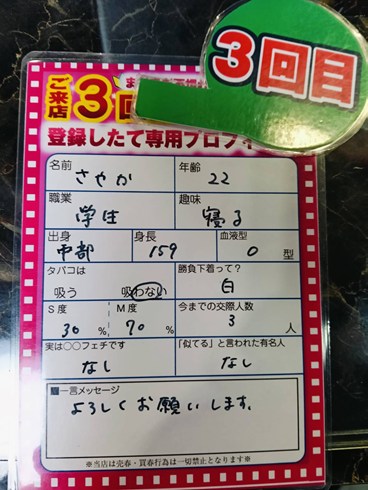 3回目
ご来店
3
登録したて専用プロフィ
名前
さやか
年齢
22
職業
学生
趣味
寝る
出身
中部
身長
159
血液型
O 型
タバコは
吸う 吸わない
勝負下着って?
白
S度
30 %
M度
70 %
今までの交際人数
3 人
実は○○フェチです
なし
「似てる」と言われた有名人
なし
■一言メッセージ
よろしくお願いします。
※当店は売春・買春行為は一切禁止となります※